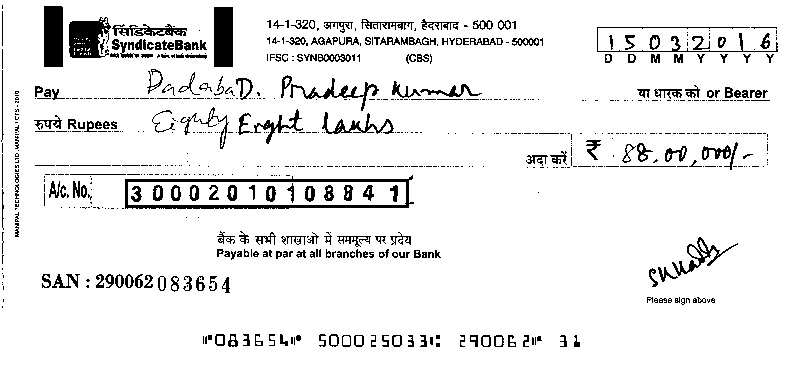 सिंडिकेटबैंक
SyndicateBank
14-1-320, अगपुरा, सितारामबाग, हैदराबाद - 500 001
14-1-320, AGAPURA, SITARAMBAGH, HYDERABAD - 500001
IFSC : SYNB0003011 (CBS)
15032016
D D M M Y Y Y Y
Pay D. Pradeep Kumar या धारक को or Bearer
रुपये Rupees Eighty Eight lakhs
अदा करें ₹ 88,00,000/-
A/c. No. 30002010108841
बैंक के सभी शाखाओ में सममूल्य पर प्रदेय
Payable at par at all branches of our Bank
SAN : 290062083654
Please sign above
MANIPAL TECHNOLOGIES LTD. MANIPAL / CTS - 2010
⑈083654⑈ 500025033⑆ 290062⑈ 31